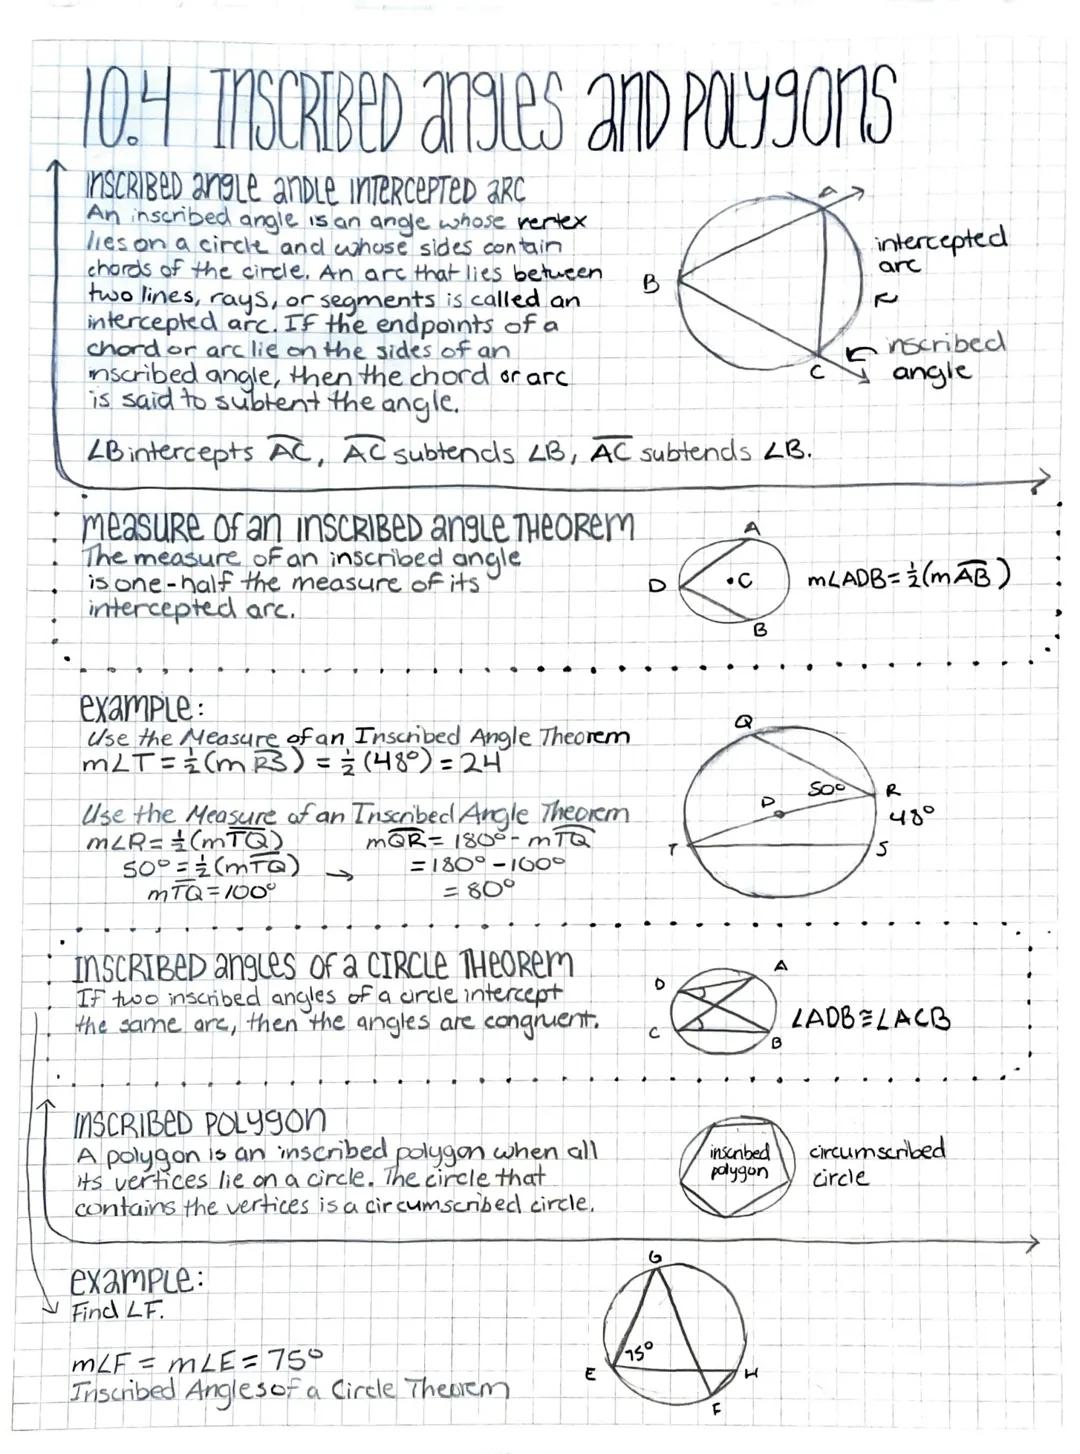 10.4 INSCRIBED angles and Polygons
INSCRIBED angle andle INTERCEPTED arc
An inscribed angle is an angle whose vertex
lies on a circle and whose sides contain
chords of the circle. An arc that lies between
two lines, rays, or segments is called an
intercepted arc. If the endpoints of a
chord or arc lie on the sides of an
inscribed angle, then the chord or arc
is said to subtent the angle.
A
B
C
intercepted
arc
inscribed
angle
∠B intercepts A͡C, A͡C subtends ∠B, A̅C̅ subtends ∠B.
Measure of an inscribed angle Theorem
The measure of an inscribed angle
is one-half the measure of its
intercepted arc.
A
D
•C
B
m∠ADB=½(mA͡B)
example:
Use the Measure of an Inscribed Angle Theorem
m∠T=½(mR͡S)=½(48°)=24
Use the Measure of an Inscribed Angle Theorem
m∠R=½(mT͡Q) mQ͡R=180°-mT͡Q
50°=½(mT͡Q) → =180°-100°
mT͡Q=100° =80°
Q
50° R
P 48°
T S
INSCRIBED angles of a CIRCLE THeorem
If two inscribed angles of a circle intercept
the same arc, then the angles are congruent.
D A
C B
∠ADB≅∠ACB
INSCRIBED Polygon
A polygon is an inscribed polygon when all
its vertices lie on a circle. The circle that
contains the vertices is a circumscribed circle.
inscribed
polygon
circumscribed
circle
example:
Find ∠F.
m∠F = m∠E = 75°
Inscribed Angles of a Circle Theorem
G
75°
E H
F